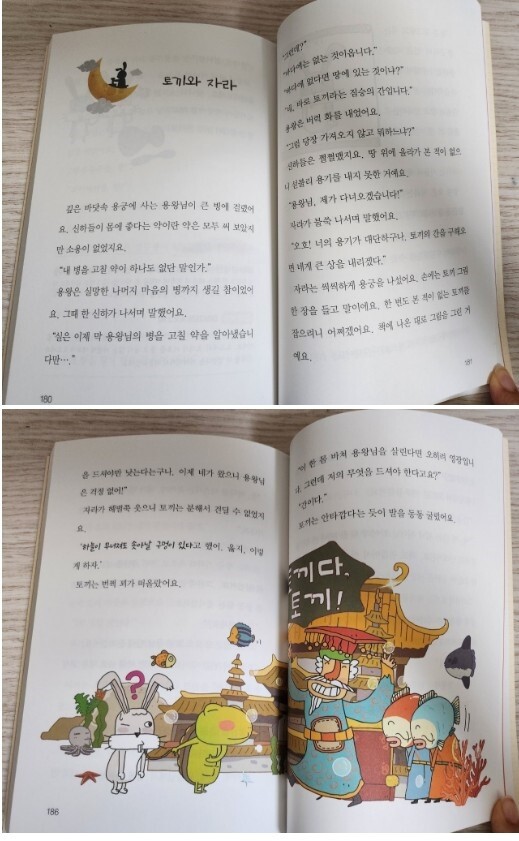 토끼와 자라
깊은 바닷속 용궁에 사는 용왕님이 큰 병에 걸렸어
요. 신하들이 몸에 좋다는 약이란 약은 모두 써 보았지
만 소용이 없었지요.
"내 병을 고칠 약이 하나도 없단 말인가."
용왕은 실망한 나머지 마음의 병까지 생길 참이었어
요. 그때 한 신하가 나서며 말했어요.
"실은 이제 막 용왕님의 병을 고칠 약을 알아냈습니
다만…."
180
"그런데?"
"바다에는 없는 것이옵니다."
"바다에 없다면 땅에 있는 것이냐?"
"네, 바로 토끼라는 짐승의 간입니다."
용왕은 버럭 화를 내었어요.
"그럼 당장 가져오지 않고 뭐하느냐?"
신하들은 쩔쩔맸지요. 땅 위에 올라가 본 적이 없으
니 섣불리 용기를 내지 못한 거예요.
"용왕님, 제가 다녀오겠습니다!"
자라가 불쑥 나서며 말했어요.
"오호! 너의 용기가 대단하구나. 토끼의 간을 구해오
면 내게 큰 상을 내리겠다."
자라는 씩씩하게 용궁을 나섰어요. 손에는 토끼 그림
한 장을 들고 말이에요. 한 번도 본 적이 없는 토끼를
잡으려니 어쩌겠어요. 책에 나온 대로 그림을 그린 거
예요.
181
을 드셔야만 낫는다는구나. 이제 네가 왔으니 용왕님
은 걱정 없어!"
자라가 해벌쭉 웃으니 토끼는 분해서 견딜 수 없었지
요.
'하늘이 무너져도 솟아날 구멍이 있다고 했어. 옳지, 이렇
게 하자.'
토끼는 번쩍 꾀가 떠올랐어요.
186
"이 한 몸 바쳐 용왕님을 살린다면 오히려 영광입니
다. 그런데 저의 무엇을 드셔야 한다고요?"
"간이다."
토끼는 안타깝다는 듯이 발을 동동 굴렀어요.
토끼다.
토끼!
?